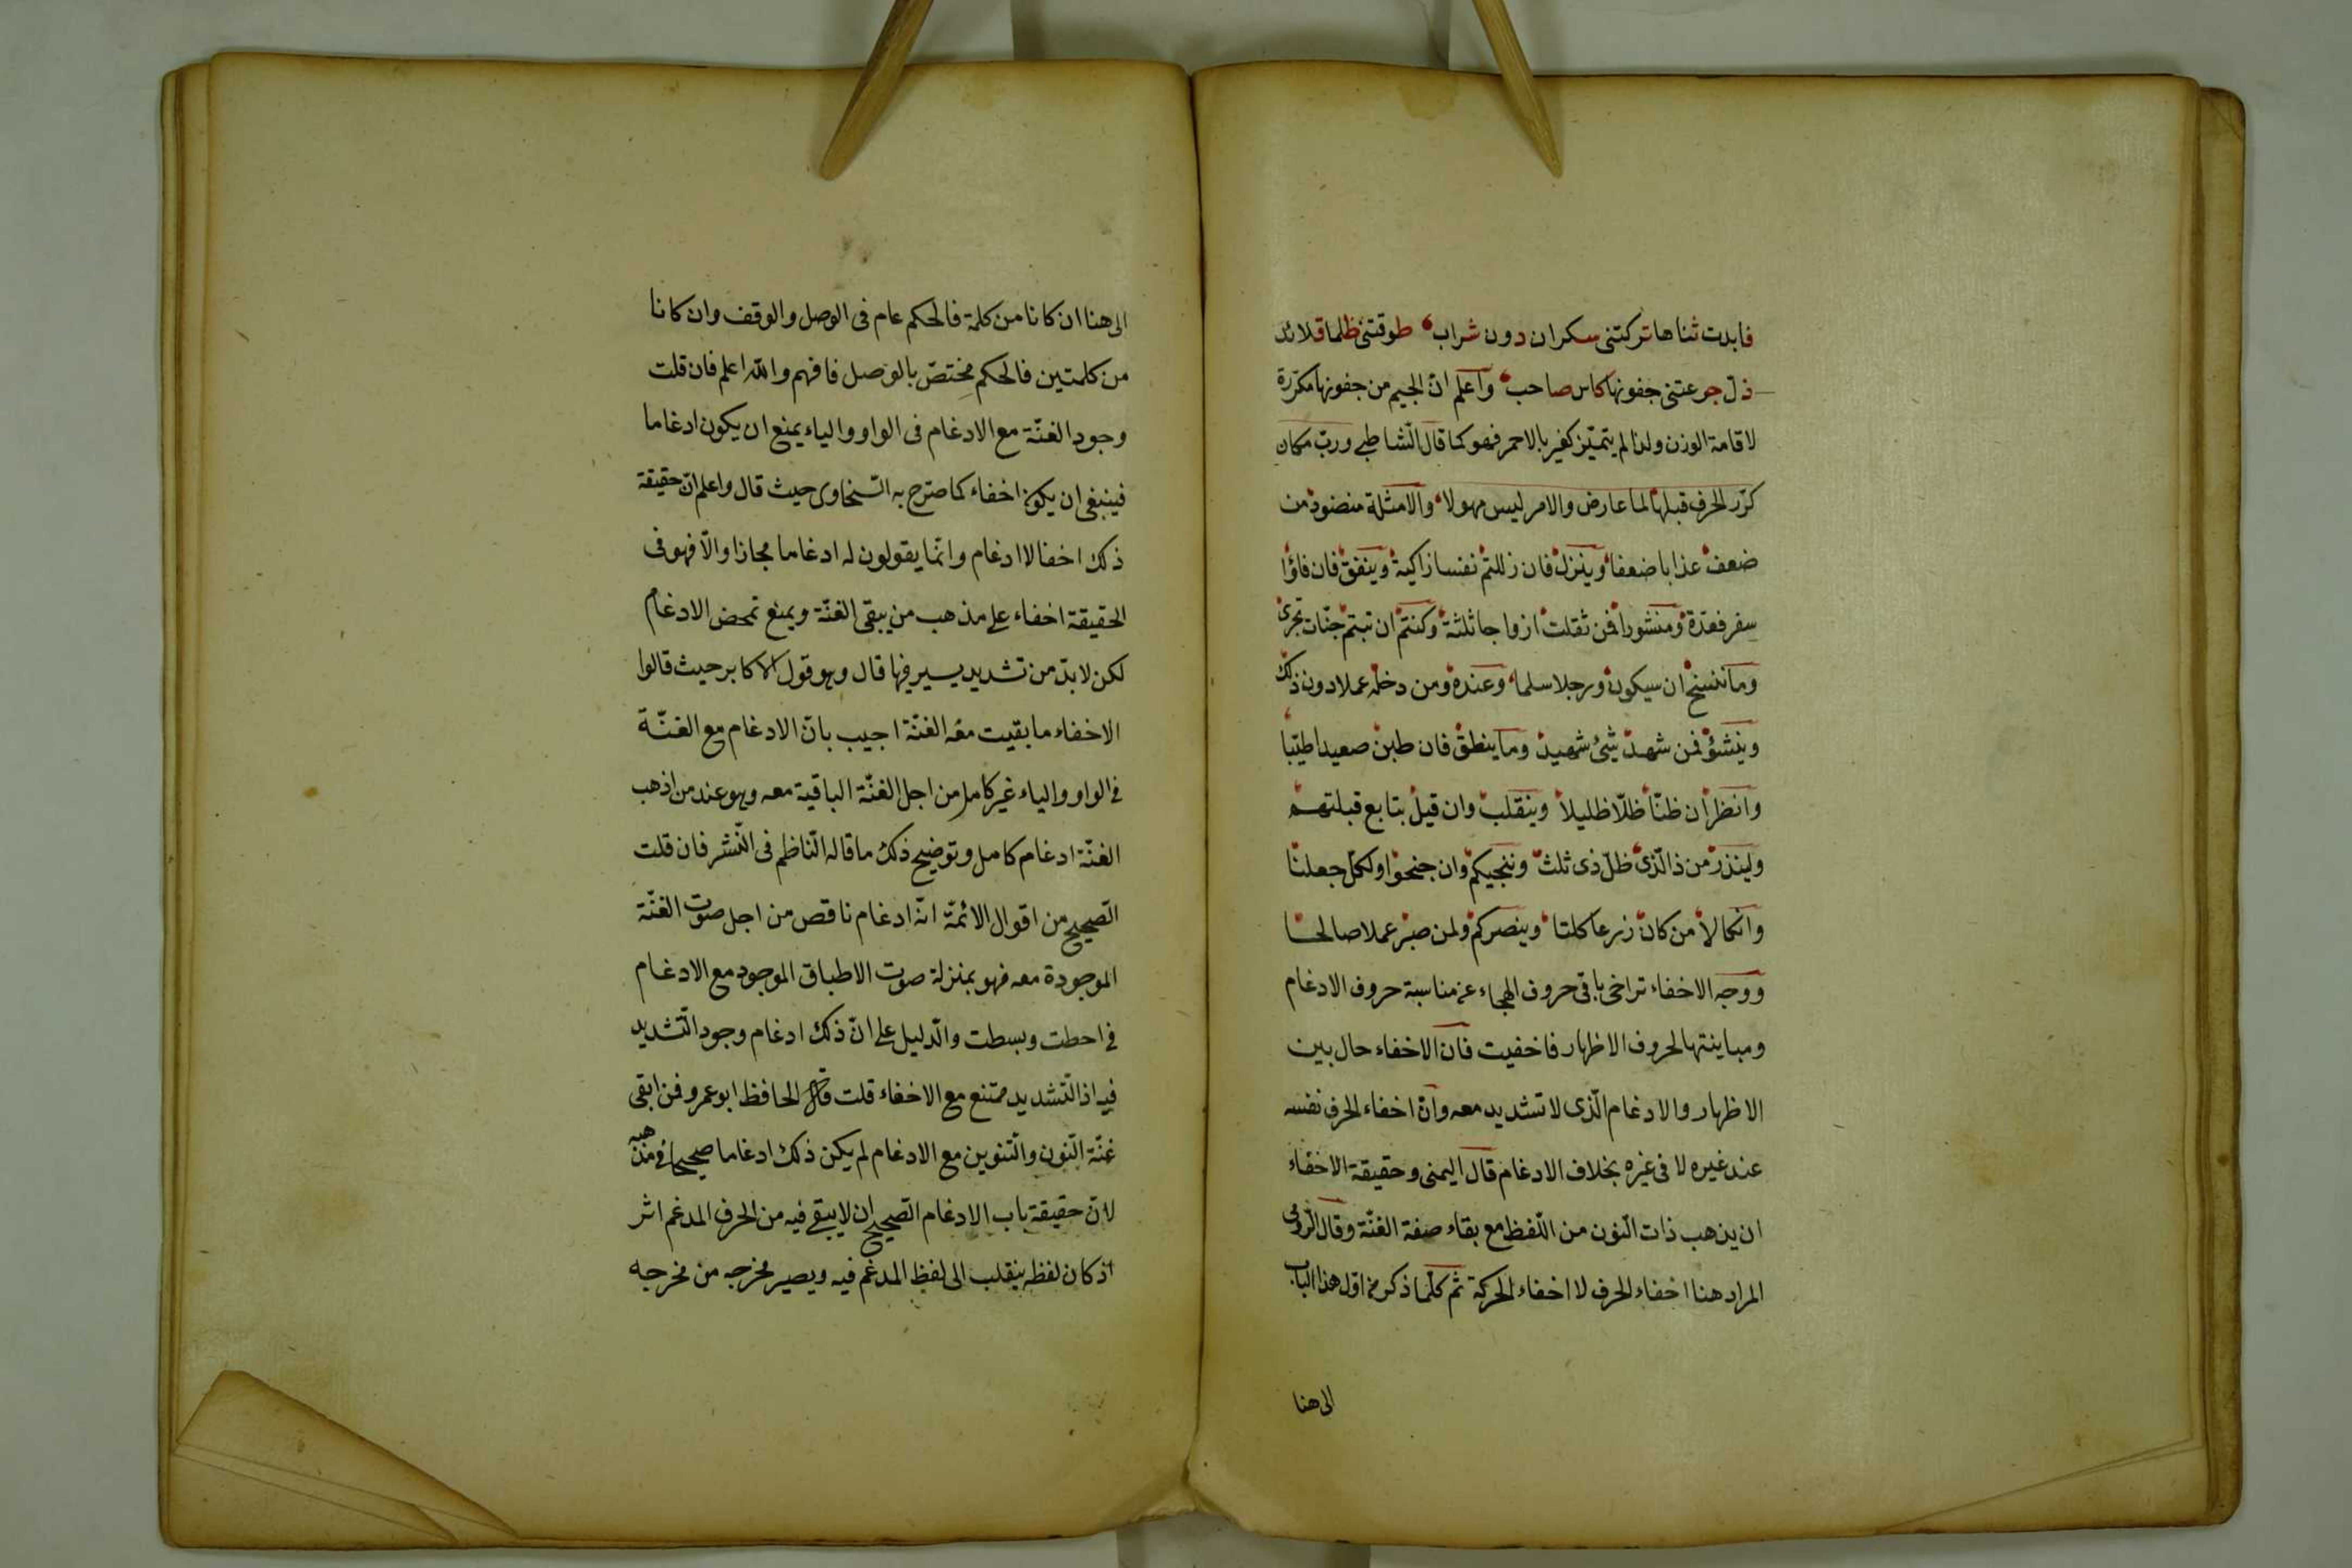 فابدت ثناها تركتنى سكران دون شراب طوقتنى ظلما قلائد
ذل جرعتنى جفونها كاس صاحب واعلم انّ الجيم من جفونها مكرّرة
لاقامة الوزن ولذا لم يتميّز كغير بالاحمر فهو كما قال الشاطبى وربّ مكان
كرّر الحرف قبلها لما عارض والامر ليس مهولا والامثلة منضود من
ضعف عذابا ضعفا وينزل فان زللتم نفسا زاكية وينفق فان فاؤا
سفر فعدّة ومنشورا فمن ثقلت ازواجا ثلثة وكنتم ان تبتم جنّات تجرى
وما ننسخ ان سيكون ورجلا سلما وعنده ومن دخله عملا دون ذلك
وينشؤ فمن شهد شئ شهيد وما ينطق فان طبن صعيدا طيّبا
وانظر ان ظنّا ظلّا ظليلا وينقلب وان قيل بتابع قبلتهم
ولينذر من ذا الّذى ظلّ ذى ثلث وننجيكم وان جنحوا ولكلّ جعلنا
وانكالا من كان زرعا كلتا وينصركم ولمن صبر عملا صالحا
ووجه الاخفاء تراخى باقى حروف الهجاء عن مناسبة حروف الادغام
ومباينتها لحروف الاظهار فاخفيت فان الاخفاء حال بين
الاظهار والادغام الّذى لا تشديد معه وانّ اخفاء الحرف نفسه
عند غيره لا فى غيره بخلاف الادغام قال اليمنى وحقيقة الاخفاء
ان يذهب ذات النّون من اللّفظ مع بقاء صفة الغنّة وقال الرّومى
المراد هنا اخفاء الحرف لا اخفاء الحركة ثم كلّما ذكر من اوّل هذا الباب
الى هنا
الى هنا ان كانا من كلمة فالحكم عام فى الوصل والوقف وان كانا
من كلمتين فالحكم مختصّ بالوصل فافهم والله اعلم فان قلت
وجود الغنّة مع الادغام فى الواو والياء يمنع ان يكون ادغاما
فينبغى ان يكون اخفاء كما صرّح به السّخاوى حيث قال واعلم انّ حقيقة
ذلك اخفا لا ادغام وانّما يقولون له ادغاما مجازا والّا فهو فى
الحقيقة اخفاء على مذهب من يبقى الغنّة ويمنع تمحض الادغام
لكن لا بدّ من تشديد يسير فيها قال وهو قول الاكابر حيث قالوا
الاخفاء ما بقيت معه الغنّة اجيب بانّ الادغام مع الغنّة
فى الواو والياء غير كامل من اجل الغنّة الباقية معه وهو عند من اذهب
الغنّة ادغام كامل وتوضيح ذلك ما قاله النّاظم فى النّشر فان قلت
الصّحيح من اقوال الائمّة انّه ادغام ناقص من اجل صوت الغنّة
الموجودة معه فهو بمنزلة صوت الاطباق الموجود مع الادغام
فى احطت وبسطت والدّليل على انّ ذلك ادغام وجود التّشديد
فيه اذ التّشديد ممتنع مع الاخفاء قلت قال الحافظ ابو عمرو فمن ابقى
غنّة النّون والتّنوين مع الادغام لم يكن ذلك ادغاما صحيحا فى مذهبه
لانّ حقيقة باب الادغام الصّحيح ان لا يبقى فيه من الحرف المدغم اثر
اذ كان لفظه ينقلب الى لفظ المدغم فيه ويصير مخرجه من مخرجه